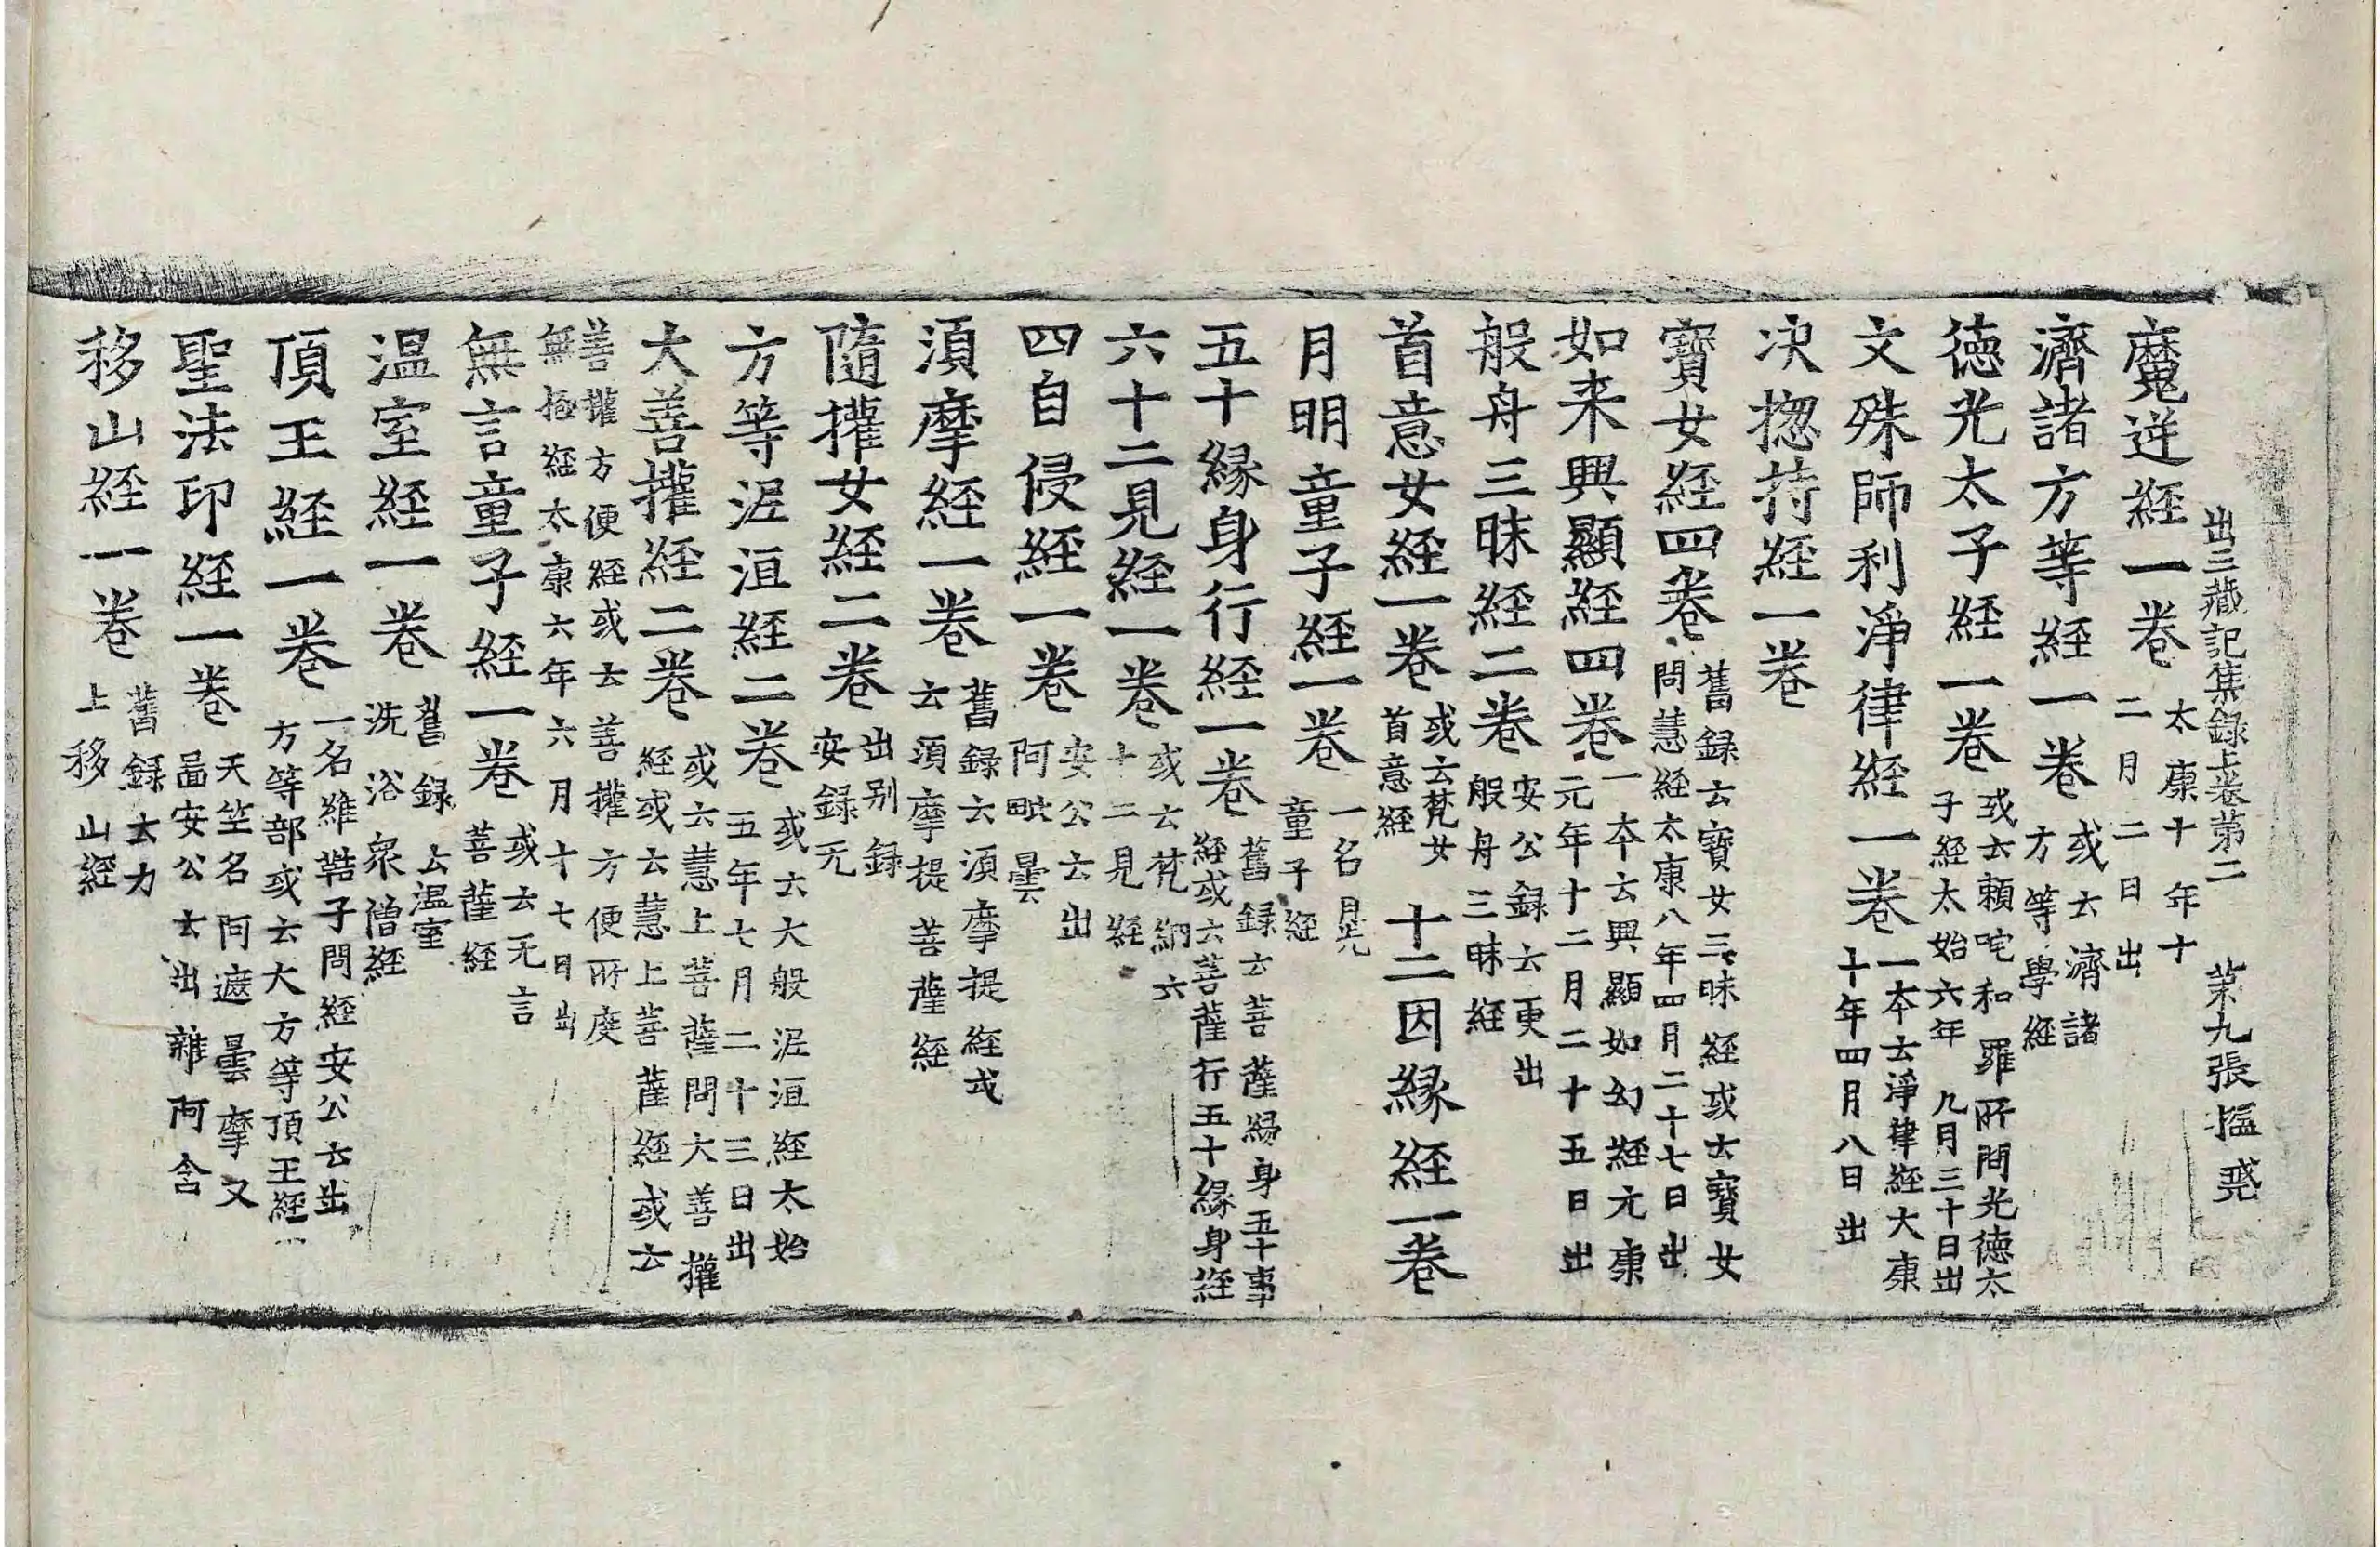 出三藏記集録上卷第二　第九張　搵　㷫
魔逆経一卷 太康十年十二月二日出
濟諸方等経一卷 或云濟諸方等學経
徳光太子経一卷 或云頼咤和羅所問光徳太子経太始六年九月三十日出
文殊師利淨律経一卷 一本云淨律経大康十年四月八日出
决揔持経一卷
寶女経四卷 舊録云寶女三昧経或云寶女問慧経太康八年四月二十七日出
如来興顯経四卷 一本云興顯如幻経元康元年十二月二十五日出
般舟三昧経二卷 安公録云更出般舟三昧経
首意女経一卷 或云梵女首意経 十二因縁経一卷
月明童子経一卷 一名月光童子経
五十縁身行経一卷 舊録云菩薩縁身五十事経或云菩薩行五十縁身経
六十二見経一卷 或云梵網六十二見経
四自侵経一卷 安公云出阿毗曇
湏摩経一卷 舊録云湏摩提経或云湏摩提菩薩経
隨權女経二卷 出别録安録无
方等泥洹経二卷 或云大般泥洹経太始五年七月二十三日出
大善權経二卷 或云慧上菩薩問大善權経或云慧上菩薩経或云
善權方便経或云善權方便所度無極経太康六年六月十七日出
無言童子経一卷 或云无言菩薩経
温室経一卷 舊録云温室洗浴衆僧経
頂王経一卷 一名維鞊子問経安公云出方等部或云大方等頂王経
聖法印経一卷 天竺名阿遮曇摩又啚安公云出雜阿含
移山経一卷 舊録云力士移山経